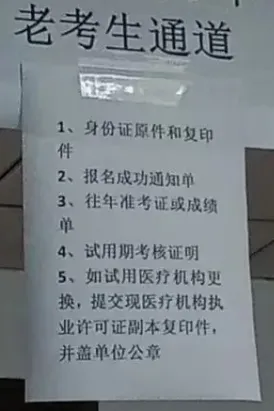 老考生通道
1、身份证原件和复印
件
2、报名成功通知单
3、往年准考证或成绩
单
4、试用期考核证明
5、如试用医疗机构更
换，提交现医疗机构执
业许可证副本复印件，
并盖单位公章